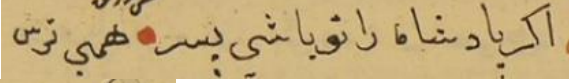 اکر پادشاه را تو باشی پسر همی ترس